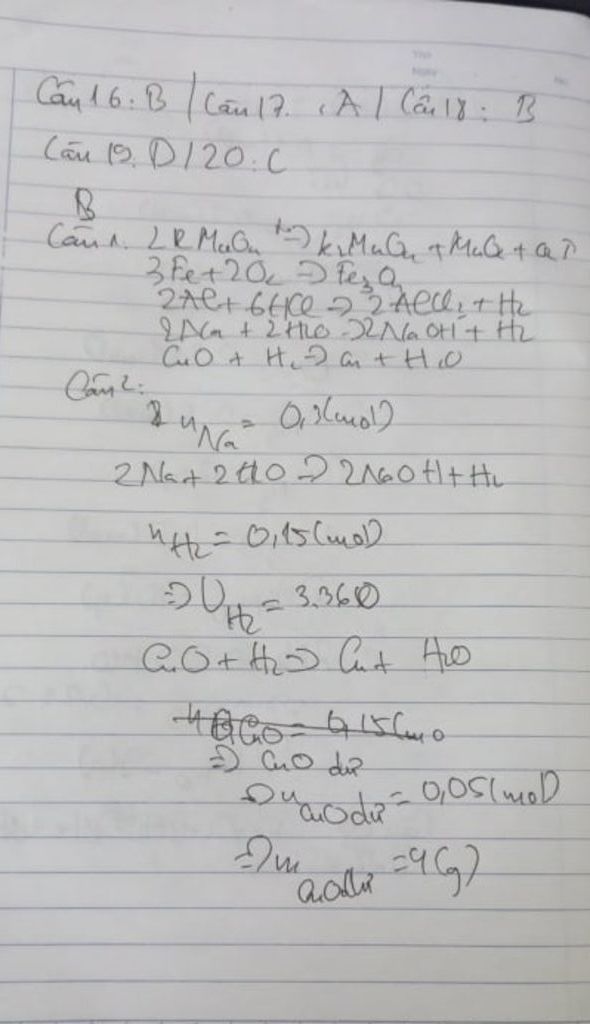 Câu 16: B / Câu 17. A / Câu 18: B
Câu 19. D / 20: C
B
Câu 1. 2KMnO4 to=> K2MnO4 + MnO2 + O2↑
3Fe + 2O2 => Fe3O4
2Al + 6HCl => 2AlCl3 + H2
2Na + 2H2O => 2NaOH + H2
CuO + H2 => Cu + H2O
Câu 2:
nNa = 0,3(mol)
2Na + 2H2O => 2NaOH + H2
nH2 = 0,15(mol)
=> VH2 = 3.36(l)
CuO + H2 => Cu + H2O
=> CuO dư
=> nCuO dư = 0,05(mol)
=> mCuO dư = 4(g)